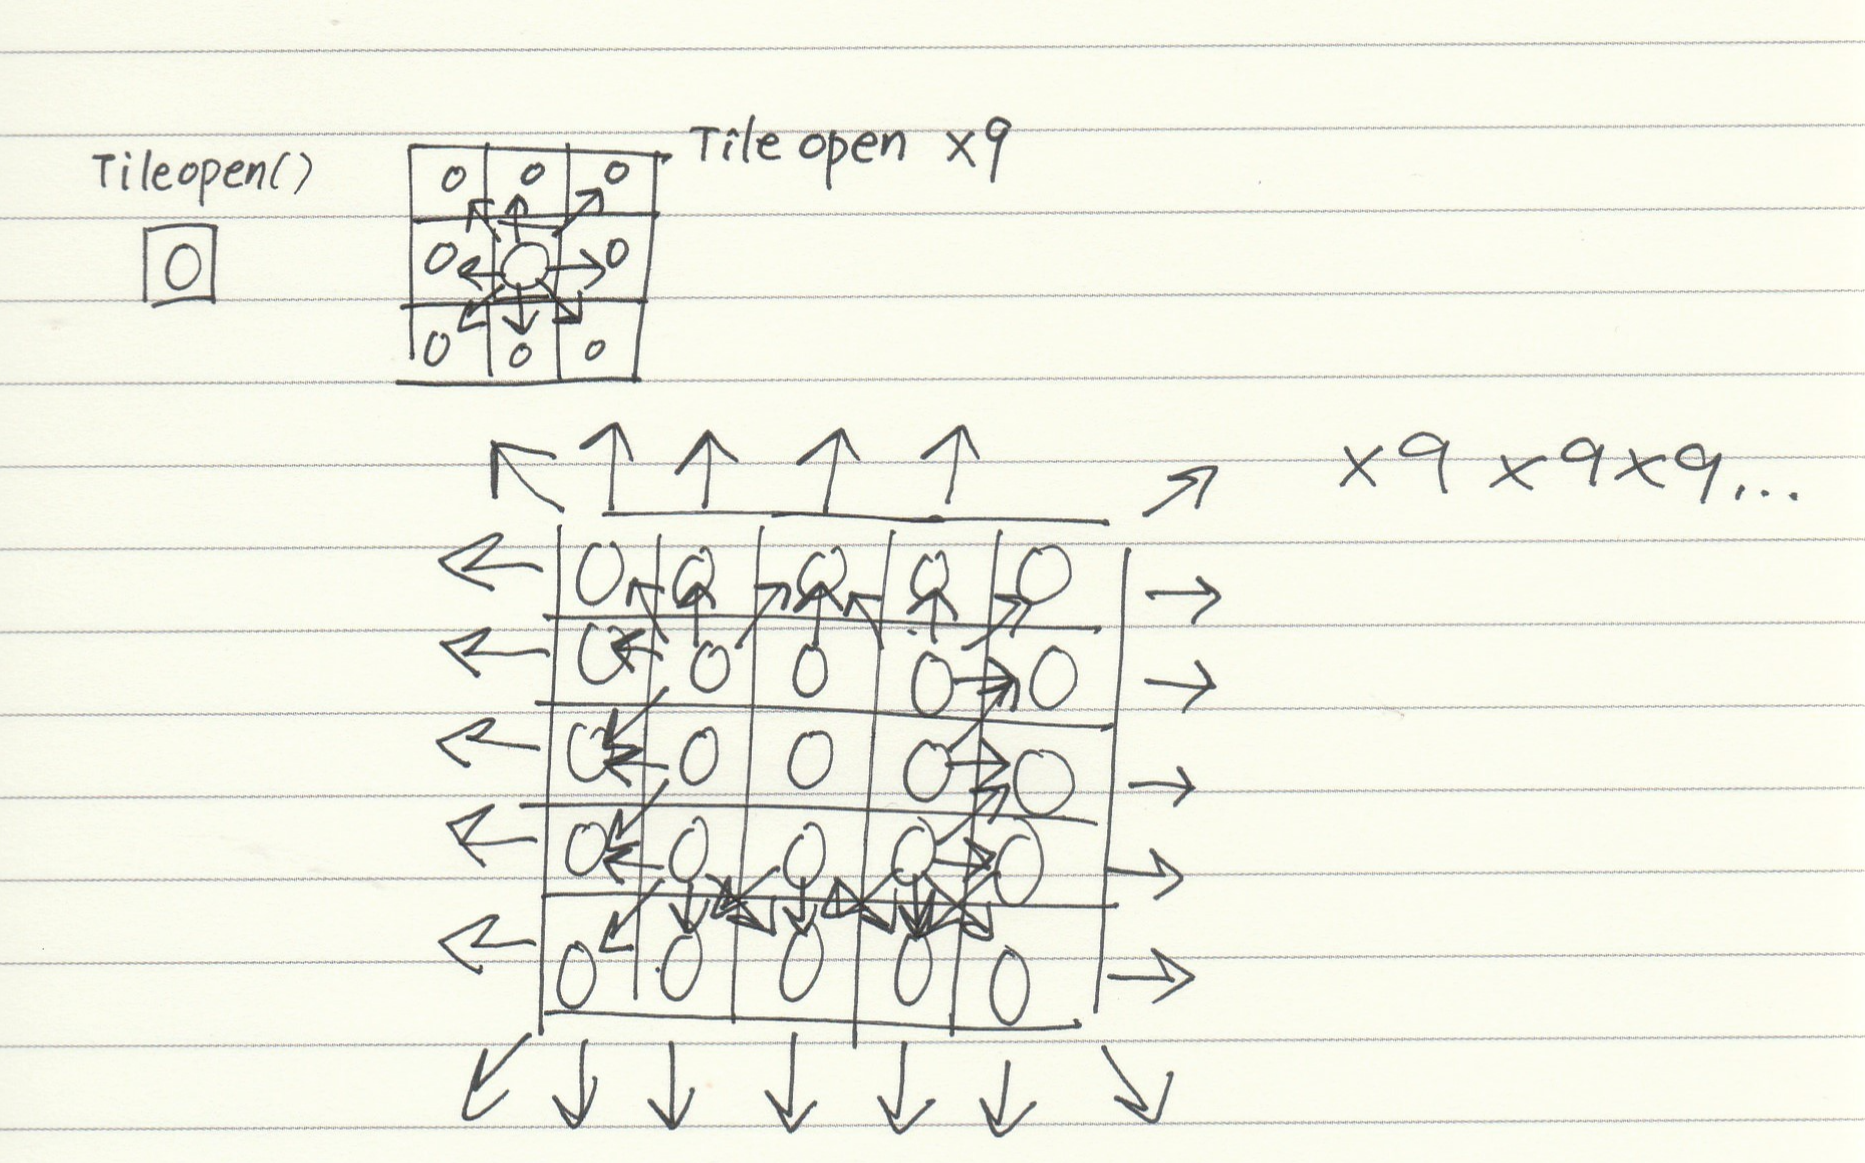 Tileopen()
Tile open x9
0
0 0 0
0 0
0 0 0
x9 x9x9...
0 0 0 0 0
0 0 0 0 0
0 0 0 0 0
0 0 0 0 0
0 0 0 0 0